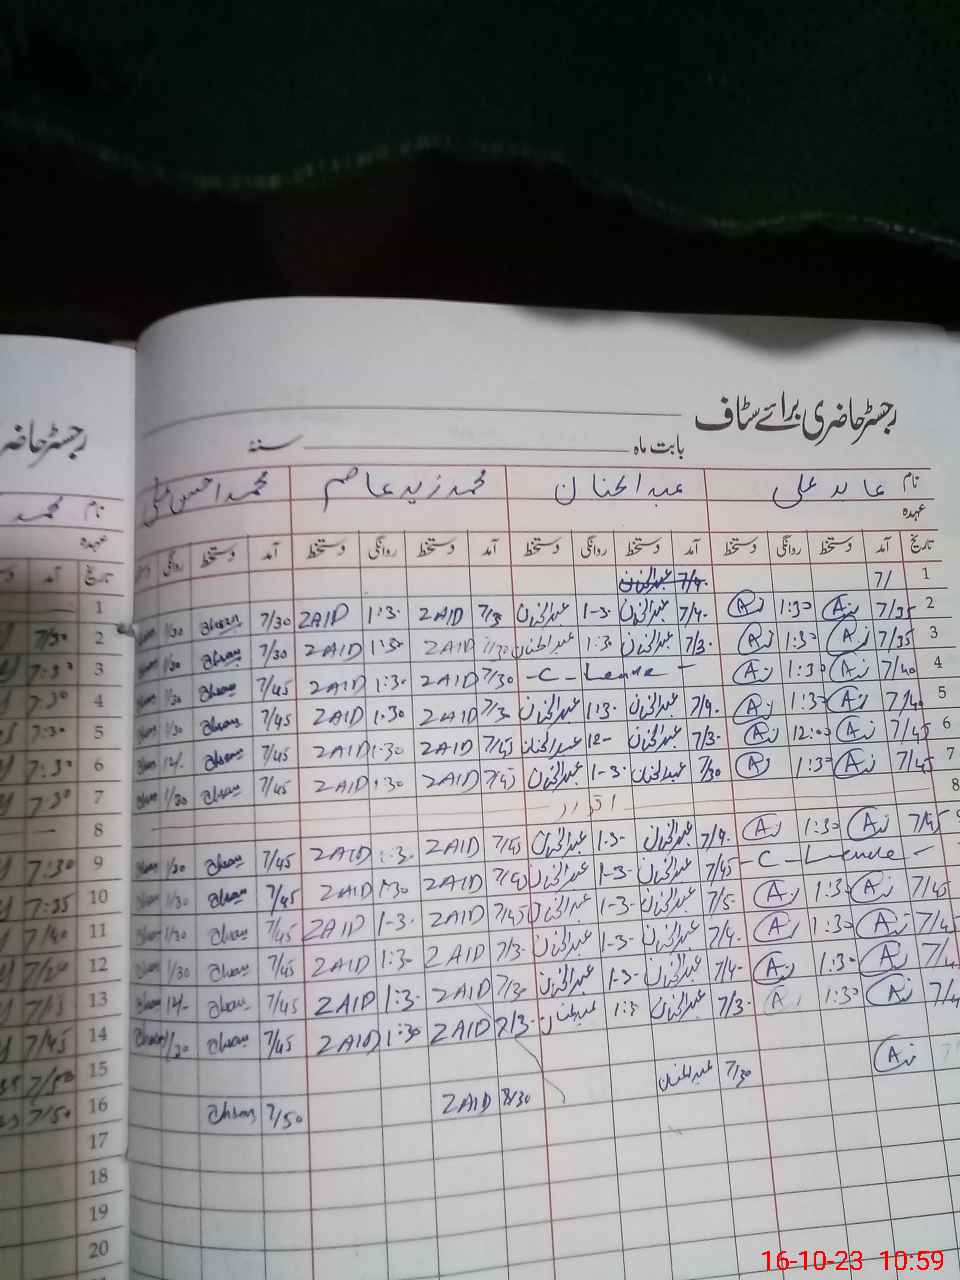 رجسٹر حاضری برائے سٹاف
بابت ماہ سنۂ
نام عابد علی عبدالحنان محمد زید عاصم محمد احسن
عہدہ
تاریخ آمد دستخط روانگی دستخط آمد دستخط روانگی دستخط آمد دستخط روانگی دستخط آمد دستخط روانگی
1 7/ 7/40 عبدالحنان
2 7/35 1:30 7/40 عبدالحنان 1-30 عبدالحنان 7/30 ZAID 1:30 ZAID 7/30 Ahsan 1/30
3 7/35 1:30 7/30 عبدالحنان 1:30 عبدالحنان 7/30 ZAID 1:30 ZAID 7/30 Ahsan 1/30
4 7/40 1:30 - C - Leave - 7/30 ZAID 1:30 ZAID 7/45 Ahsan 1/30
5 7/40 1:30 7/40 عبدالحنان 1:30 عبدالحنان 7/30 ZAID 1:30 ZAID 7/45 Ahsan 1/30
6 7/45 12:00 7/30 عبدالحنان 12- عبدالحنان 7/45 ZAID 1-30 ZAID 7/45 Ahsan 12/-
7 7/45 1:30 7/30 عبدالحنان 1-30 عبدالحنان 7/45 ZAID 1:30 ZAID 7/45 Ahsan 1/30
8 اتوار
9 7/45 1:30 7/40 عبدالحنان 1-30 عبدالحنان 7/45 ZAID 1:30 ZAID 7/45 Ahsan 1/30
- C - Leave - 7/45 عبدالحنان 1-30 عبدالحنان 7/40 ZAID 1:30 ZAID 7/45 Ahsan 1/30
7/45 1:30 7/50 عبدالحنان 1-30 عبدالحنان 7/45 ZAID 1-30 ZAID 7/45 Ahsan 1/30
1:30 7/40 عبدالحنان 1-30 عبدالحنان 7/30 ZAID 1:30 ZAID 7/45 Ahsan 1/30
1:30 7/40 عبدالحنان 1-30 عبدالحنان 7/30 ZAID 1:30 ZAID 7/45 Ahsan 12/-
1:30 7/30 عبدالحنان 1:30 عبدالحنان 7/30 ZAID 1:30 ZAID 7/45 Ahsan 1/30
7/30 عبدالحنان 8/30 ZAID 7/50 Ahsan
رجسٹر حاضر
نام محمد
عہدہ
تاریخ آمد
1 —
2 7/30
3 7:30
4 7:30
5 7:30
6 7:30
7 7:30
8 —
9 7:30
10 7:35
11 7/40
12
13
14 7/45
15 7/50
16 7/50
17
18
19
20
16-10-23 10:59